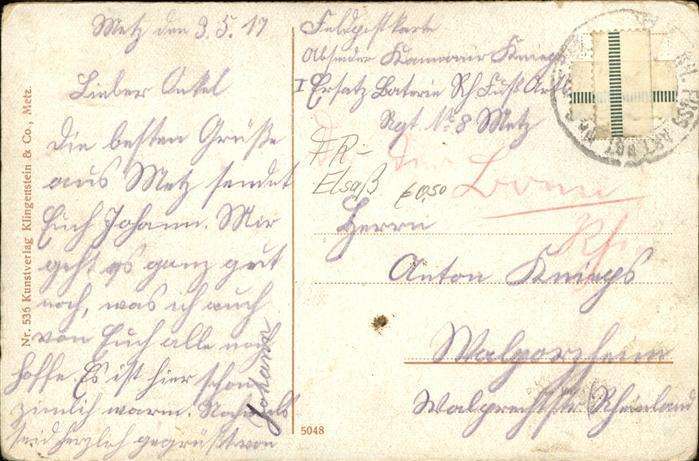 Metz den 3.5.17
Lieber Onkel
Die besten Grüße
aus Metz sendet
Euch Johann. Mir
geht es ganz gut
noch, was ich auch
von Euch alle noch
hoffe Es ist hier schon
zimlich warm. Nochmals
seid herzlich gegrüßt von
Johann
Nr. 536 Kunstverlag Klingenstein & Co., Metz.
Feldpostkarte
Absender Kanonier Knieps
I Ersatz Baterie Rh Fußt Art
Rgt No 8 Metz
FR-
Elsaß €0,50
Bonn
Rh.
Herrn
Anton Knieps
Walporzheim
Rheinland
5048